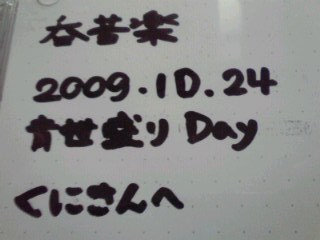 呑苦楽
2009.10.24
青世盛り Day
くにさんへ